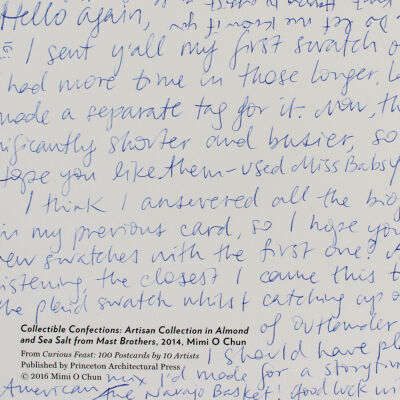 Hello again,
I sent y'all my first swatch o
had more time in those longer
made a separate tag for it. Now, th
nificantly shorter and busier, so
hope you like them - used Miss Babs
I think I answered all the big
in my previous card, so I hope you
new swatches with the first one?
istening, the closest I came this t
the plaid swatch whilst catching up o
Collectible Confections: Artisan Collection in Almond
and Sea Salt from Mast Brothers, 2014, Mimi O Chun
of outlander
From Curious Feast: 100 Postcards by 10 Artists
Published by Princeton Architectural Press
I should have pl
© 2016 Mimi O Chun
I'd made for a storytim
American
The Navajo Basket! Good luck in